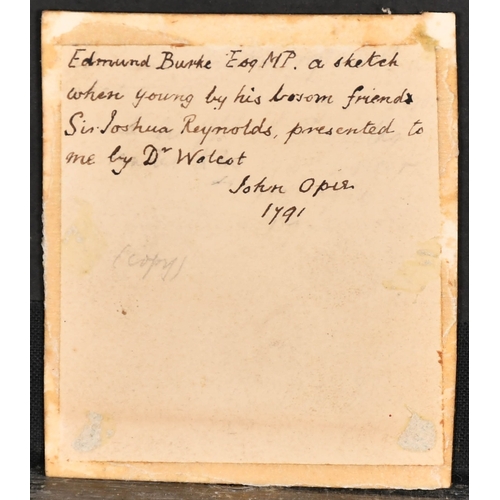 Edmund Burke Esq MP. a sketch
when young by his bosom friend
Sir Joshua Reynolds, presented to
me by Dr Wolcot
John Opie
1791
(copy)